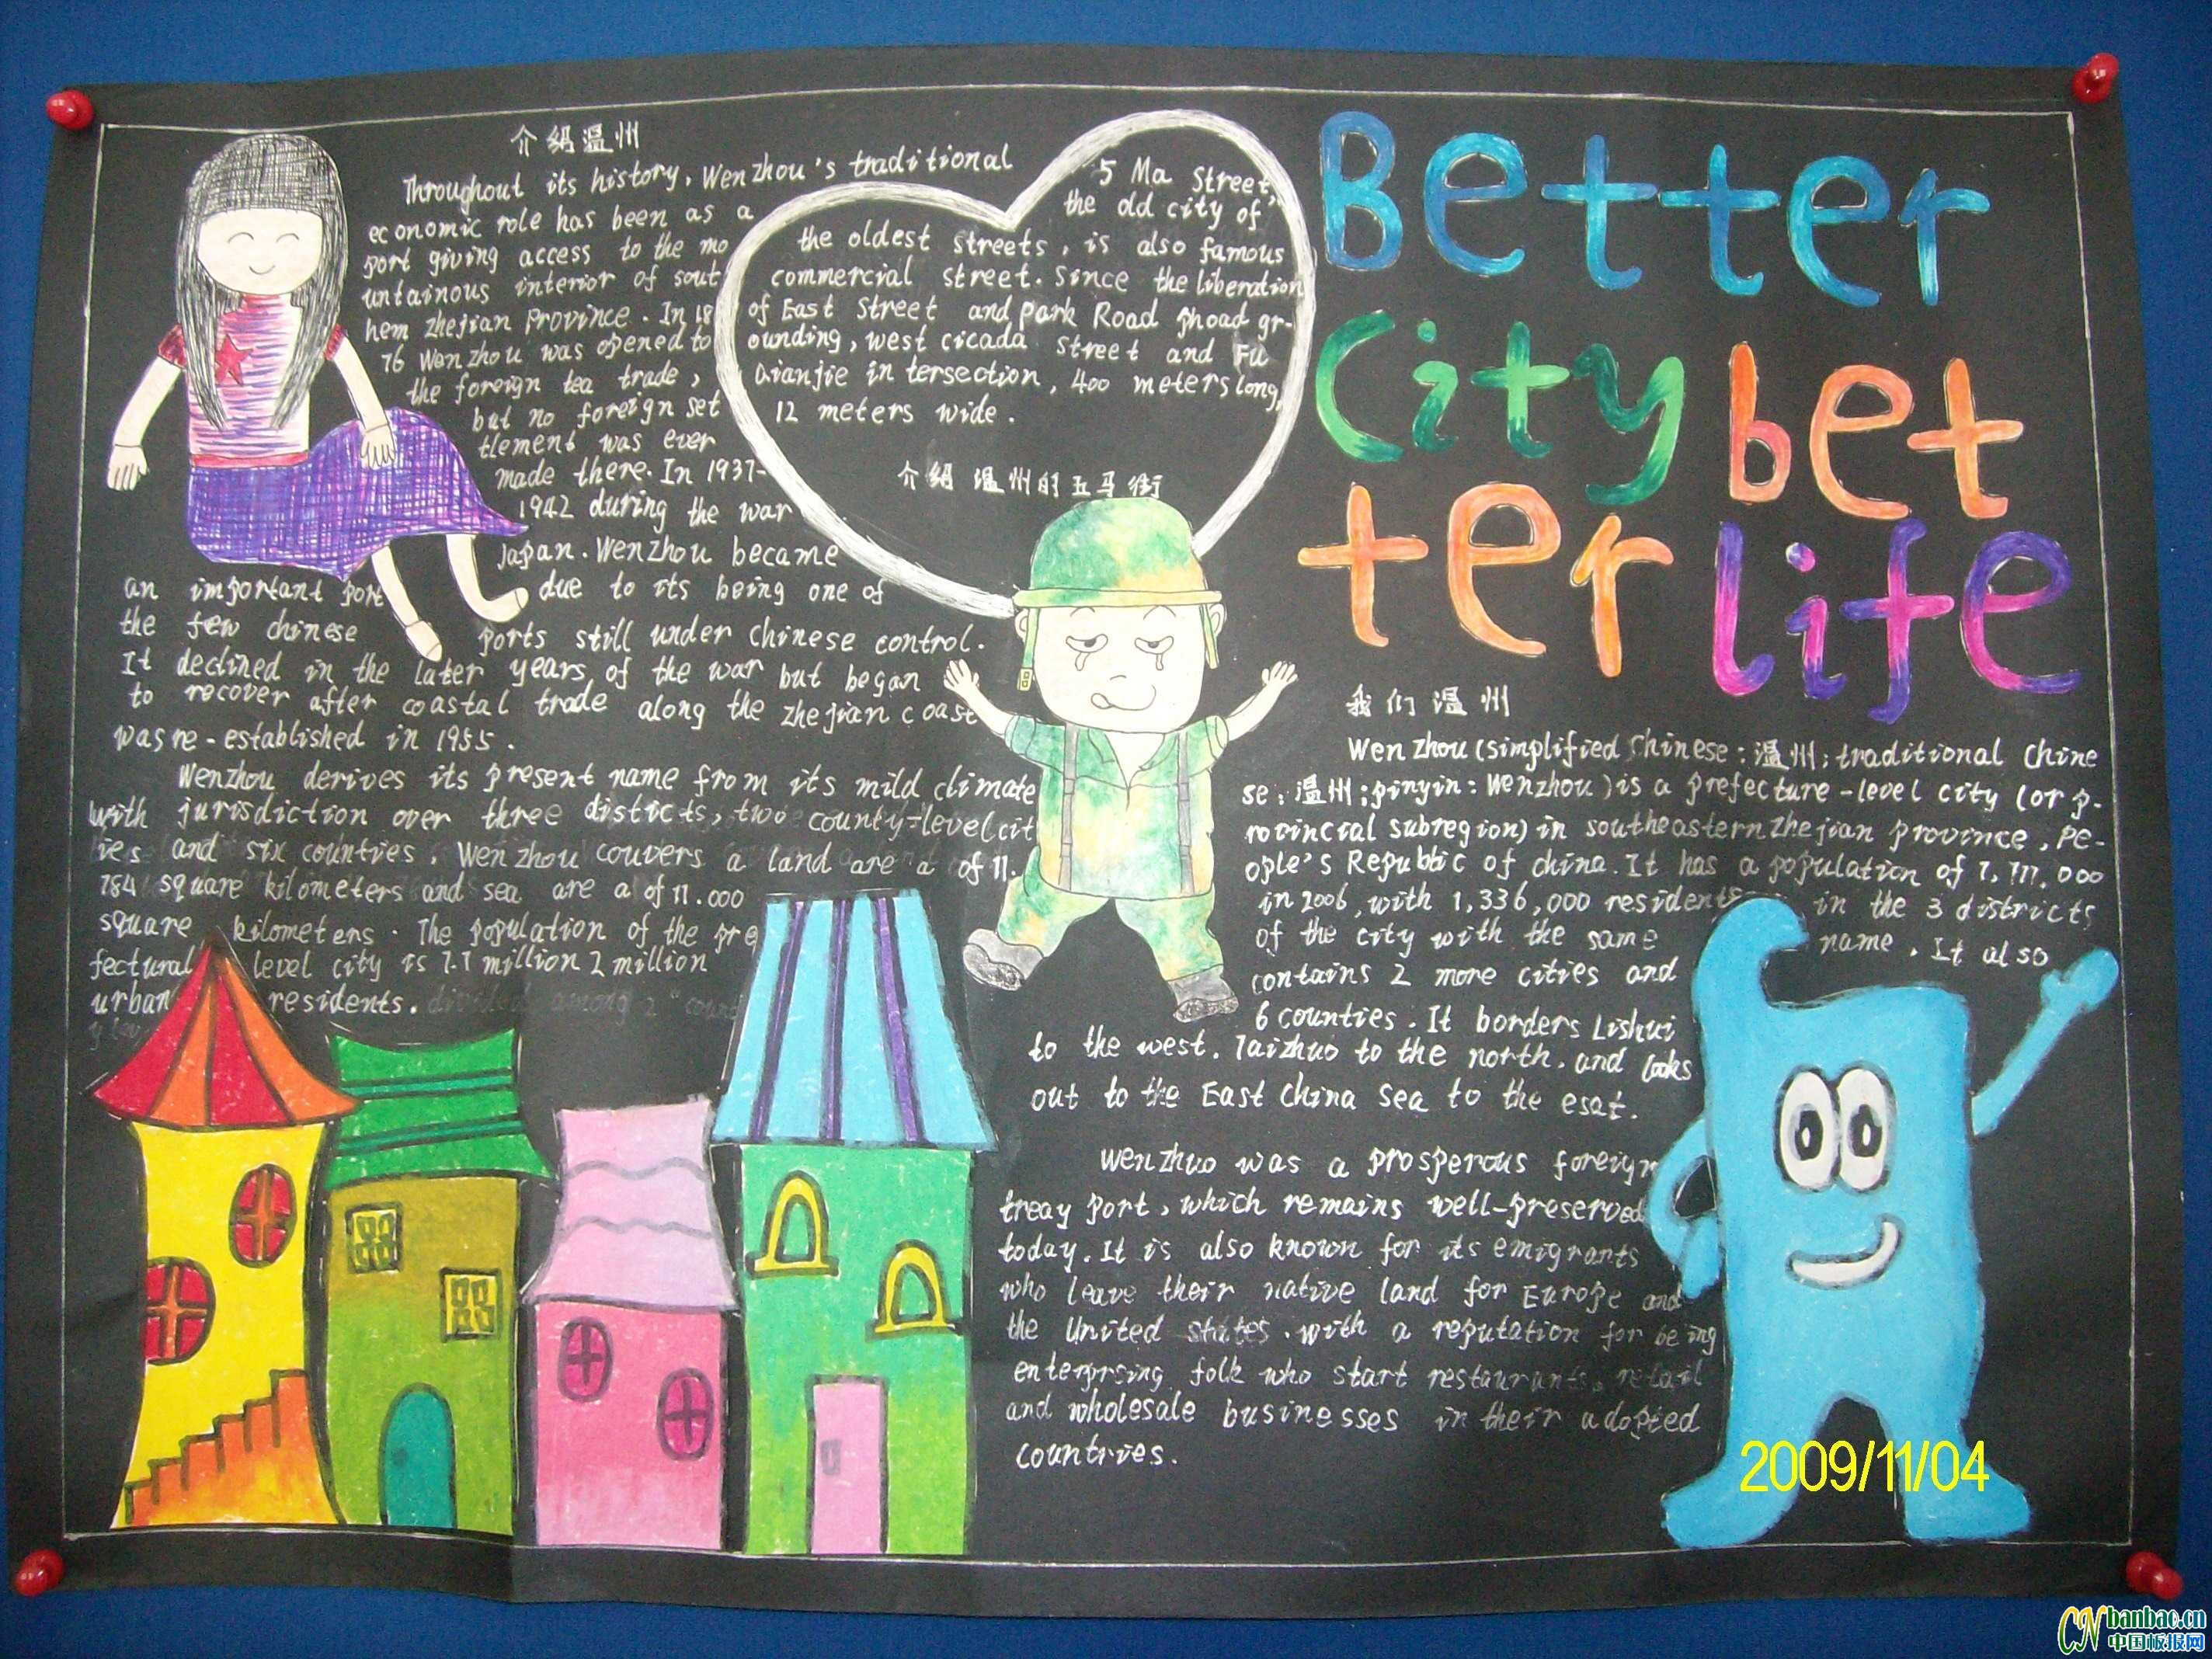 介绍温州
Throughout its history, Wenzhou's traditional
economic role has been as a
port giving access to the mo
untainous interior of sout
hem zhejian province. In 18
76 Wenzhou was opened to
the foreign tea trade,
but no foreign set
tlement was ever
made there. In 1937-
1942 during the war
Japan. Wenzhou became
an important port due to its being one of
the few chinese ports still under chinese control.
It declined in the later years of the war but began
to recover after coastal trade along the zhejian coast
was re-established in 1955.
Wenzhou derives its present name from its mild climate
with jurisdiction over three disticts, two county-level cit
ies and six counties. Wenzhou couvers a land are a of 11.
784 square kilometers and sea are a of 11.000
square kilometers. The population of the pre
fectural level city is 7.7 million 2 million
urban residents. divided among 2 "count
y lev
5 Ma Street,
the old city of
the oldest streets, is also famous
commercial street. Since the liberation
of East Street and park Road phoad gr-
ounding, west cicada street and Fu
Qianjie in tersection, 400 meters long,
12 meters wide.
介绍温州的五马街
Better
City bet
ter life
我们温州
Wenzhou (simplified Chinese: 温州; traditional Chine
se: 温州; pinyin: Wenzhou) is a prefecture-level city (or p-
rovincial subregion) in southeastern zhejian province, Pe-
ople's Republic of china. It has a population of 7,777,000
in 2006, with 1,336,000 residents in the 3 districts
of the city with the same name. It also
contains 2 more cities and
6 counties. It borders Lishui
to the west. Taizhuo to the north, and looks
out to the East China Sea to the esat.
Wenzhuo was a prosperous foreign
treay port, which remains well-preserved
today. It is also known for its emigrants
who leave their native land for Europe and
the United states. with a reputation for being
enterprsing folk who start restaurants, retail
and wholesale businesses in their adopted
countries.
2009/11/04
CN banbao.cn
中国板报网